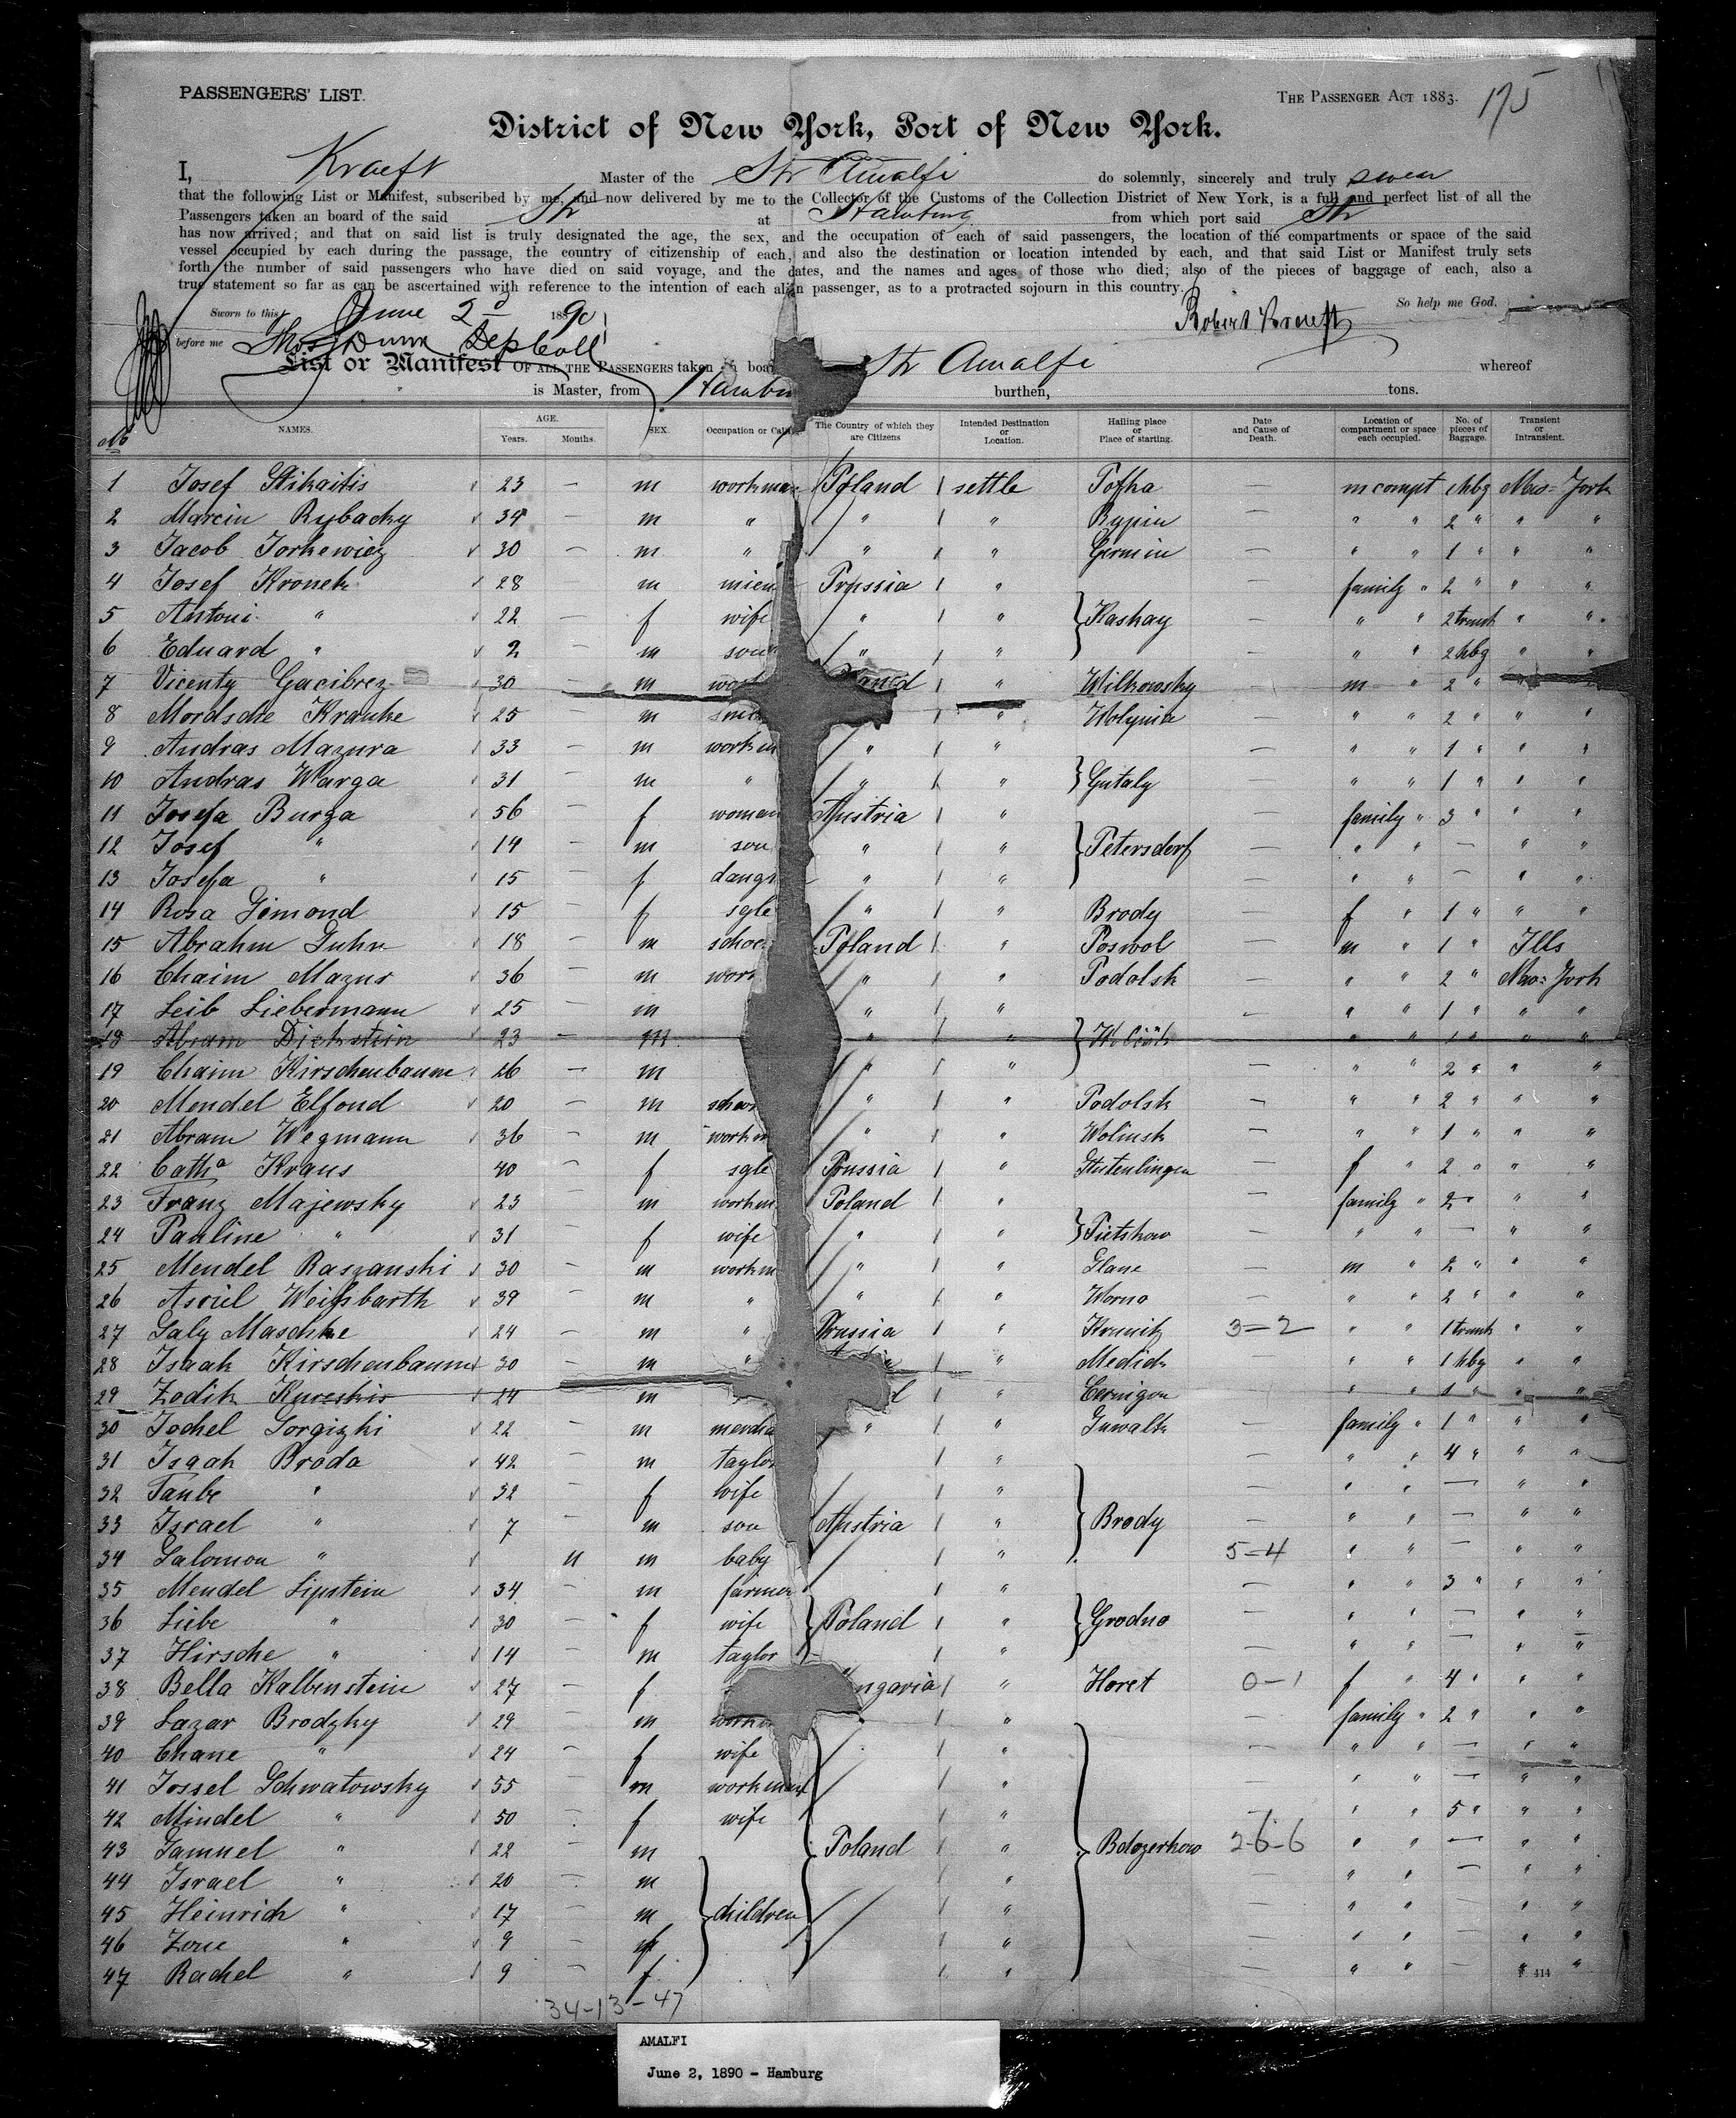 PASSENGERS' LIST.
THE PASSENGER ACT 1883. 175
District of New York, Port of New York.
I, Kraeft Master of the Str Amalfi do solemnly, sincerely and truly swear
that the following List or Manifest, subscribed by me, and now delivered by me to the Collector of the Customs of the Collection District of New York, is a full and perfect list of all the
Passengers taken an board of the said Str at Hamburg from which port said Str
has now arrived; and that on said list is truly designated the age, the sex, and the occupation of each of said passengers, the location of the compartments or space of the said
vessel occupied by each during the passage, the country of citizenship of each, and also the destination or location intended by each, and that said List or Manifest truly sets
forth the number of said passengers who have died on said voyage, and the dates, and the names and ages of those who died; also of the pieces of baggage of each, also a
true statement so far as can be ascertained with reference to the intention of each alien passenger, as to a protracted sojourn in this country.
So help me God.
Sworn to this June 2d 1890
Robert Kraeft
before me Thos Dunn Dep Coll
List or Manifest OF ALL THE PASSENGERS taken on board Str Amalfi whereof
is Master, from Hamburg burthen, tons.
No NAMES. AGE. Years. Months. SEX. Occupation or Calling The Country of which they are Citizens Intended Destination or Location. Hailing place or Place of starting. Date and Cause of Death. Location of compartment or space each occupied. No. of pieces of Baggage. Transient or Intransient.
1 Josef Stikaitis 23 — m workman Poland settle Potha — m compt 1 hbg New-York
2 Marcin Rybacky 34 — m " " " Rypin — " " 2 " " "
3 Jacob Jorkewicz 30 — m " " " Germin — " " 1 " " "
4 Josef Kronek 28 m Prussia " family " 2 " " "
5 Antoni " 22 — f wife " " Kashay — " " 2 trunk " "
6 Eduard " 2 — m son " " — " " 2 hbg " "
7 Vicenty Gacibrez 30 — m " Wilkowsky — m " 2 "
8 Mordsche Kranke 25 — m " Wolynia — " " 2 " " "
9 Andras Mazura 33 — m workm " " — " " 1 " " "
10 Andras Warga 31 — m " " " Gutaly — " " 1 " " "
11 Josefa Burza 56 — f woman Austria " family " 3 " " "
12 Josef " 14 — m son " " Petersdorf — " " — " "
13 Josefa " 15 — f daugr " " — " " — " "
14 Rosa Simond 15 — f sgle " " Brody — f " 1 " " "
15 Abrahm Guhn 18 — m Poland " Poswol — m " 1 " Ills
16 Chaim Mazur 36 — m work " " Podolsk — " " 2 " New-York
17 Leib Liebermann 25 — m " " — " " 1 " " "
18 Abram Dickstein 23 — m " " " " 1 " " "
19 Chaim Kirschenbaum 26 — m " " — " " 2 " " "
20 Mendel Elfond 20 — m " " Podolsk — " " 2 " " "
21 Abram Wegmann 36 — m workm " " Wolinsk — " " 1 " " "
22 Catha Kraus 40 — f sgle Prussia " Stutenlingen — f " 2 " " "
23 Franz Majewsky 23 — m workm Poland " — family " 2 " "
24 Pauline " 31 f wife " " Pietshow — " " — " "
25 Mendel Raszanski 30 — m workm " " Glane — m " 2 " " "
26 Asriel Weissbarth 39 — m " " " Worno — " " 2 " " "
27 Saly Maschke 24 — m " Prussia " Krunitz 3=2 " " 1 trunk " "
28 Isaak Kirschenbaum 30 — m " " Medick — " " 1 hbg " "
29 Zodik Kureskis 14 — m " Cernigon " " 1 " " "
30 Jochel Gorgizki 22 — m mercha " " Suwalk — family " 1 " " "
31 Isaak Broda 42 — m taylor " — " " 4 " " "
32 Taube " 32 — f wife " — " " — " "
33 Israel " 7 — m son Austria " Brody — " " — " "
34 Salomon " 11 m baby " 5=4 " " — " "
35 Mendel Lipstein 34 — m farmer " — " " 3 " " "
36 Liebe " 30 — f wife Poland " Grodno — " " — " "
37 Hirsche " 14 — m taylor " — " " — " "
38 Bella Kalbenstein 27 — f ngaria " Horet 0-1 f " 4 " " "
39 Lazar Brodzky 29 — m workm " — family " 2 " " "
40 Chane " 24 — f wife " — " " — " "
41 Jossel Schwatowsky 55 — m workman " — " " — " "
42 Mindel " 50 — f wife " — " " 5 " " "
43 Samuel " 22 — m Poland " Bdozerkow 2-6-6 " " — " "
44 Israel " 20 — m " — " " — " "
45 Heinrich " 17 — m children " — " " — " "
46 " 9 — f " — " " — " "
47 Rachel " 9 — f " — " " — " "
F 414
34-13-47
AMALFI
June 2, 1890 - Hamburg